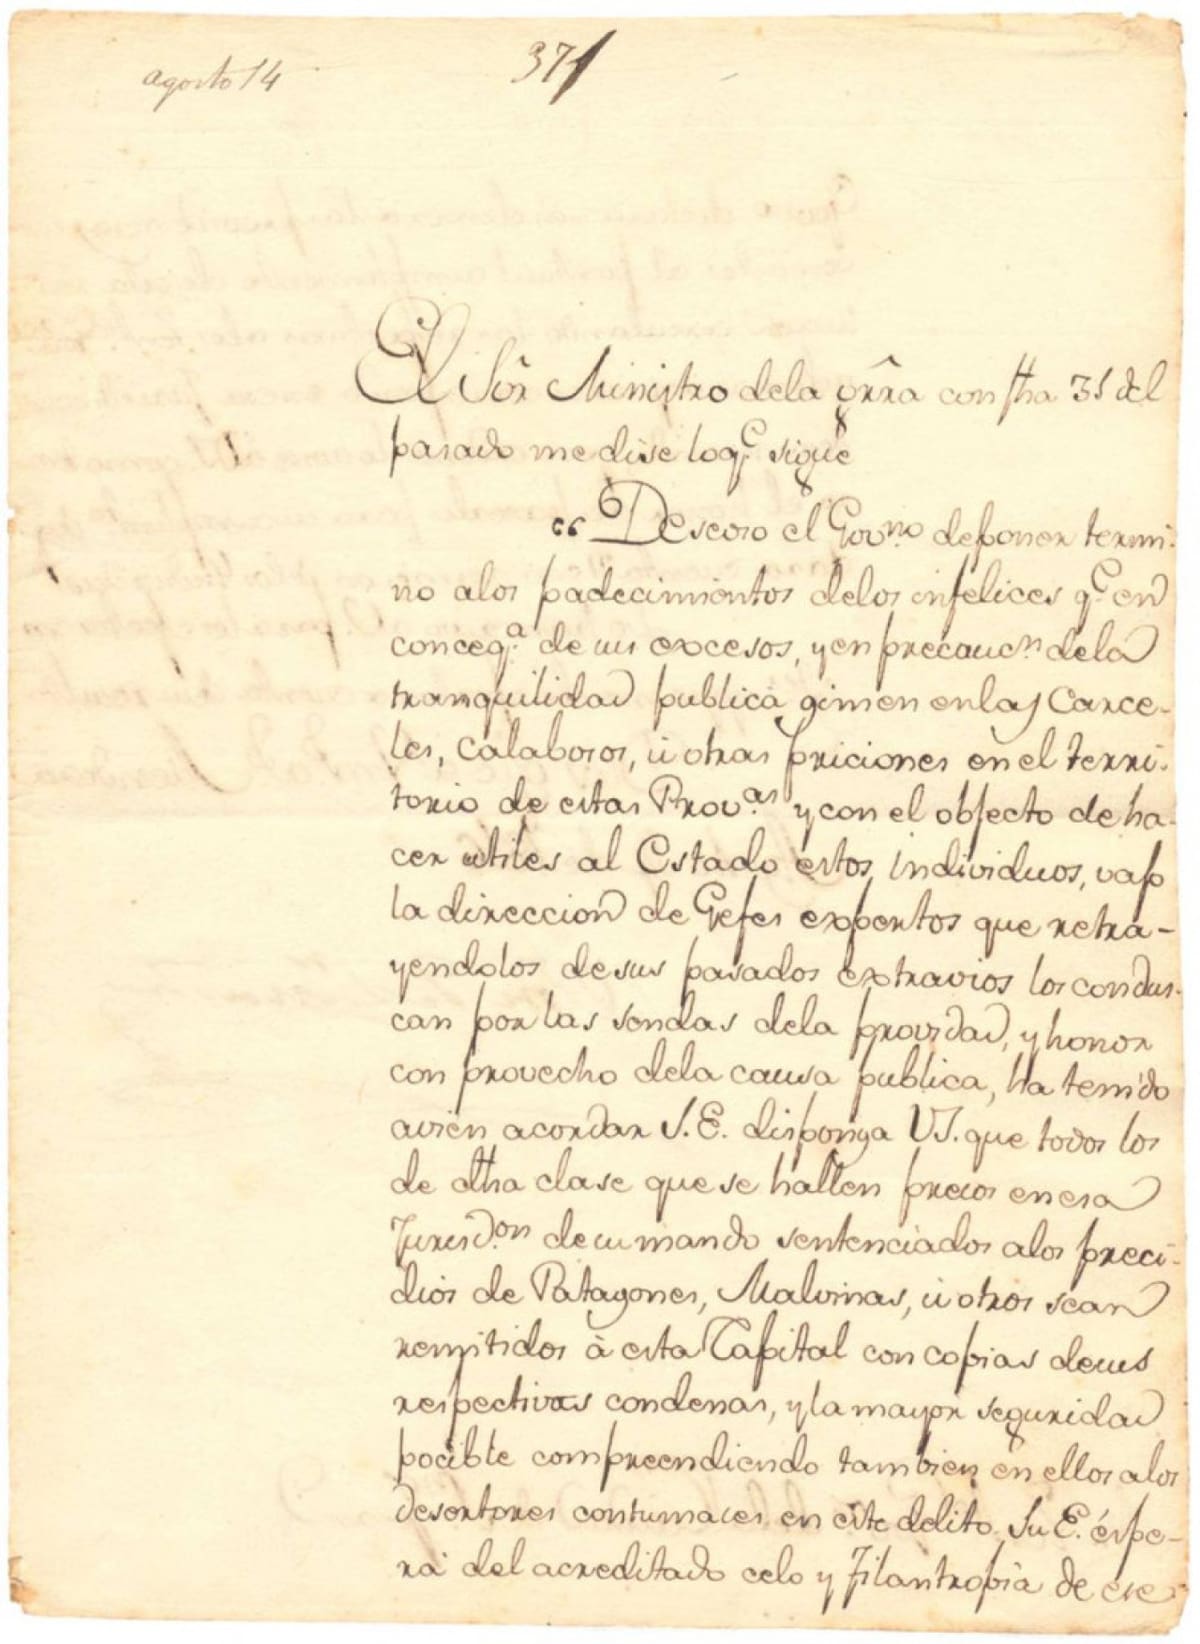 agosto 14
371
El Sôr Ministro dela grȓa con fha 31 del
pasado me dise loq.e sigue
"Deseoso el Gov.no deponer termi-
no alos padecimientos delos infelices q.e en
conceq.a de sus excesos, y en precauc.n dela
tranquilidad publica gimen enlas Carce-
les, calabosos, ú otras priciones en el terri-
torio de estas Prov.as y con el objecto de ha-
cer utiles al Estado estos individuos, vajo
la direccion de Gefes expertos que retra-
yendolos de sus pasados extravios los condus-
can por las sendas dela providad, y honor
con provecho dela causa publica, ha tenido
avien acordar S.E. disponga VS. que todos los
de dha clase que se hallen presos en esa
Jurisd.on de su mando sentenciados alos preci-
dios de Patagones, Malvinas, ú otros sean
remitidos à esta Capital con copias de sus
respectivas condenas, y la mayor seguridad
pocible compreendiendo tambien en ellos alos
desertores contumaces en este delito. Su E. éspe-
ra del acreditado celo y Filantropia de ese